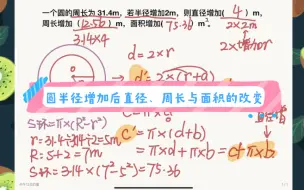 一个圆的周长为 31.4m, 若半径增加2m, 则直径增加( 4 )m,
周长增加(12.56)m, 面积增加(75.36)m².
3.14×4
2×2m
2×增加r
d=2×r
圆半径增加后直径、周长与面积的改变
S环=π×(R²-r²)
r=31.4÷3.14÷2=5m
R=5+2=7m
S环=3.14×(7²-5²)=75.36
C'=π×(d+b)
=π×d+π×b=C+π×b